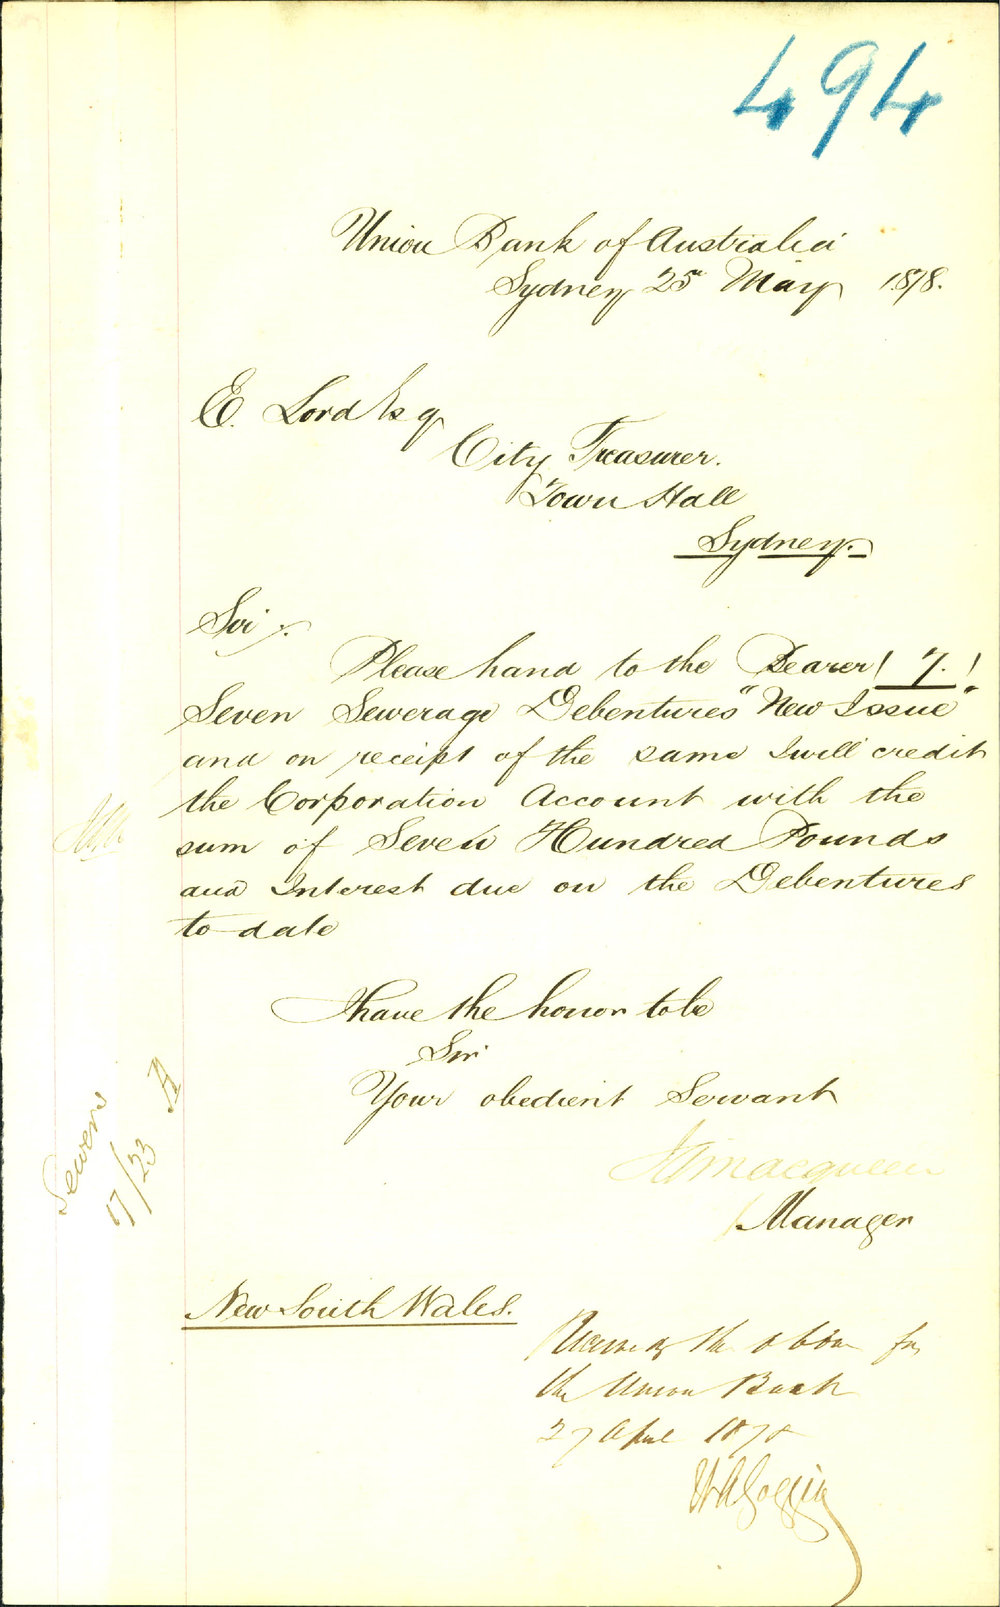 494
Union Bank of Australia
Sydney 25th May 1878.
E. Lord Esq
City Treasurer.
Town Hall
Sydney.
Sir,
Please hand to the Bearer (7.)
Seven Sewerage Debentures "New Issue"
and on receipt of the same I will credit
the Corporation Account with the
sum of Seven Hundred Pounds
and Interest due on the Debentures
to date
I have the honor to be
Sir
Your obedient Servant
Macqueen
Manager
Sewers
17/23 A
New South Wales.
Received the above for
the Union Bank
27 April 1878